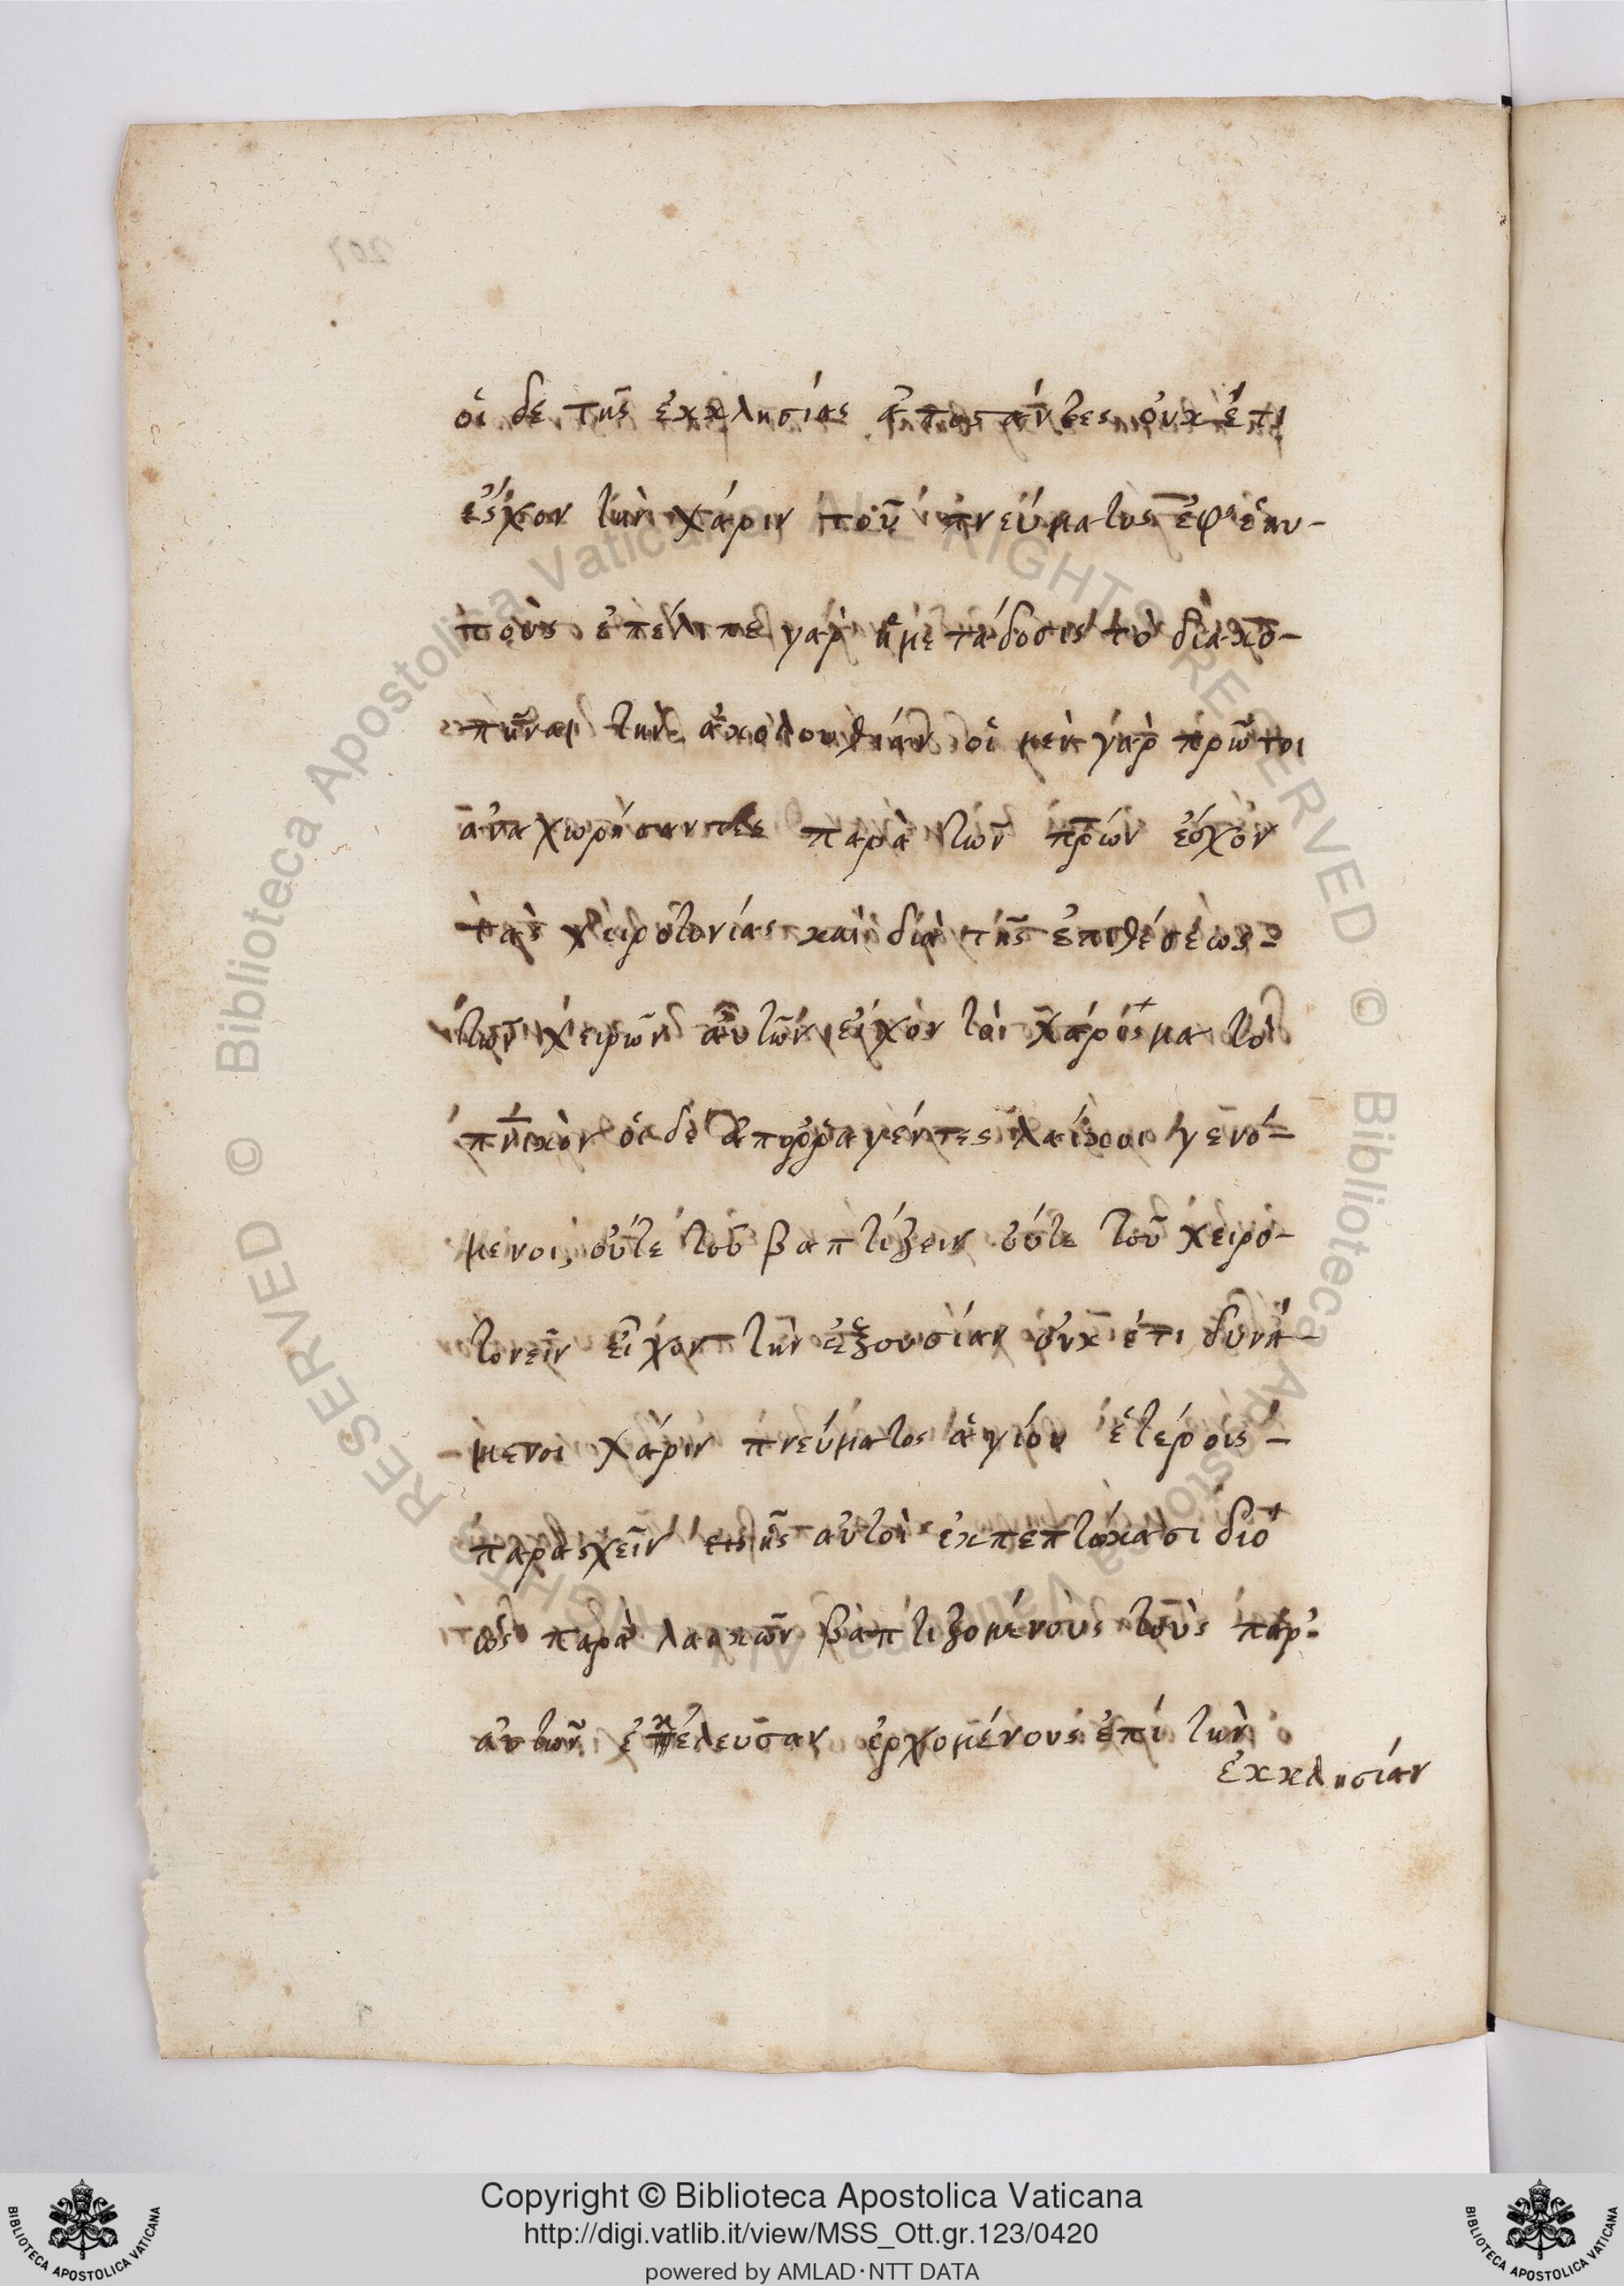 οἱ δὲ τῆς ἐκκλησίας ἀποστάντες οὐκ ἔτι
ἔσχον τὴν χάριν τοῦ πνεύματος ἐφ' ἑαυ-
τοὺς ἐπέλιπε γὰρ ἡ μετάδοσις τὸ διακο-
πῆναι τὴν ἀκολουθίαν οἱ μὲν γὰρ πρῶτοι
ἀναχωρήσαντες παρὰ τῶν πρῶν ἔσχον
τὰς χειροτονίας καὶ διὰ τῆς ἐπιθέσεως
τῶν χειρῶν αὐτῶν εἶχον τὸ χάρισμα τὸ
πνικὸν οἱ δὲ ἀπορραγέντες λαϊκοὶ γενό-
μενοι, οὔτε τοῦ βαπτίζειν οὔτε τοῦ χειρο-
τονεῖν εἶχον τὴν ἐξουσίαν οὐκ ἔτι δυνά-
μενοι χάριν πνεύματος ἁγίου ἑτέροις
παρασχεῖν ἧς αὐτοὶ ἐκπεπτώκασι διὸ
ὡς παρὰ λαικῶν βαπτιζομένους τοὺς παρ'
αὐτῶν ἐκέλευσαν ἐρχομένους ἐπὶ τὴν
ἐκκλησίαν
207
RESERVED © Biblioteca Apostolica Vaticana ALL RIGHTS RESERVED © Biblioteca Apostolica Vaticana ALL RIGHTS
Copyright © Biblioteca Apostolica Vaticana
http://digi.vatlib.it/view/MSS_Ott.gr.123/0420
powered by AMLAD·NTT DATA
BIBLIOTECA APOSTOLICA VATICANA
BIBLIOTECA APOSTOLICA VATICANA